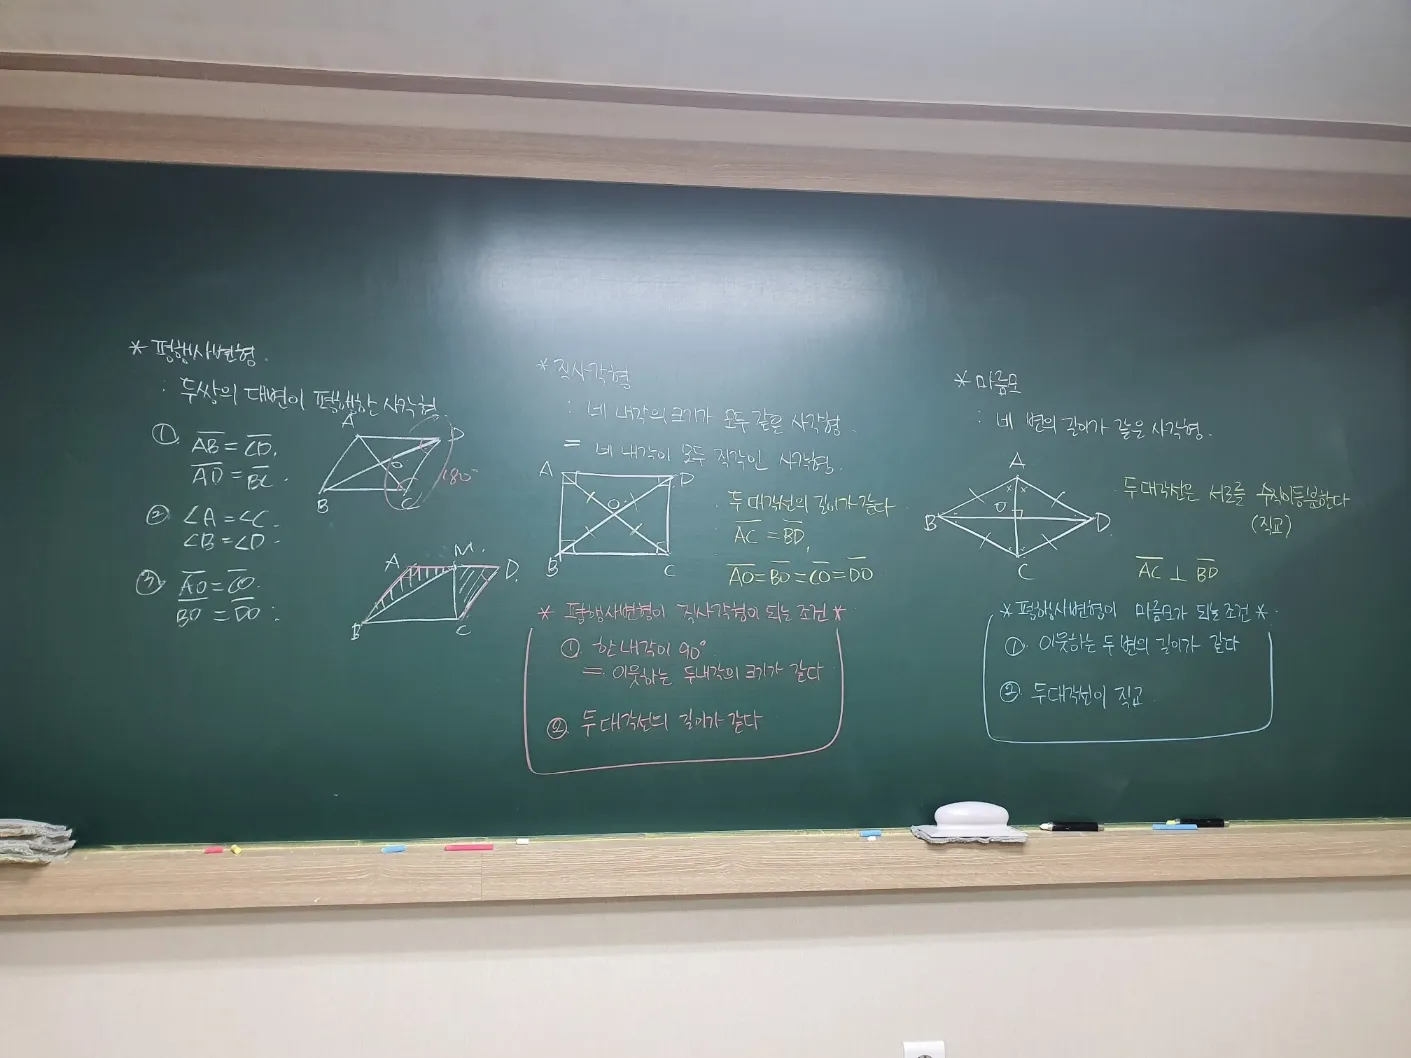 * 평행사변형.
: 두쌍의 대변이 평행한 사각형.
① AB = CD.
AD = BC.
② ∠A = ∠C.
∠B = ∠D.
③ AO = CO.
BO = DO.
A
D
O
B
C
180°
A
M.
D.
B
C
* 직사각형
: 네 내각의 크기가 모두 같은 사각형.
= 네 내각이 모두 직각인 사각형.
A
D
O
B
C
두 대각선의 길이가 같다
AC = BD,
AO = BO = CO = DO
* 평행사변형이 직사각형이 되는 조건 *
① 한 내각이 90°
= 이웃하는 두 내각의 크기가 같다
② 두 대각선의 길이가 같다
* 마름모
: 네 변의 길이가 같은 사각형.
A
B
O
D
C
두 대각선은 서로를 수직이등분한다
(직교)
AC ⊥ BD
* 평행사변형이 마름모가 되는 조건 *
① 이웃하는 두 변의 길이가 같다
② 두 대각선이 직교